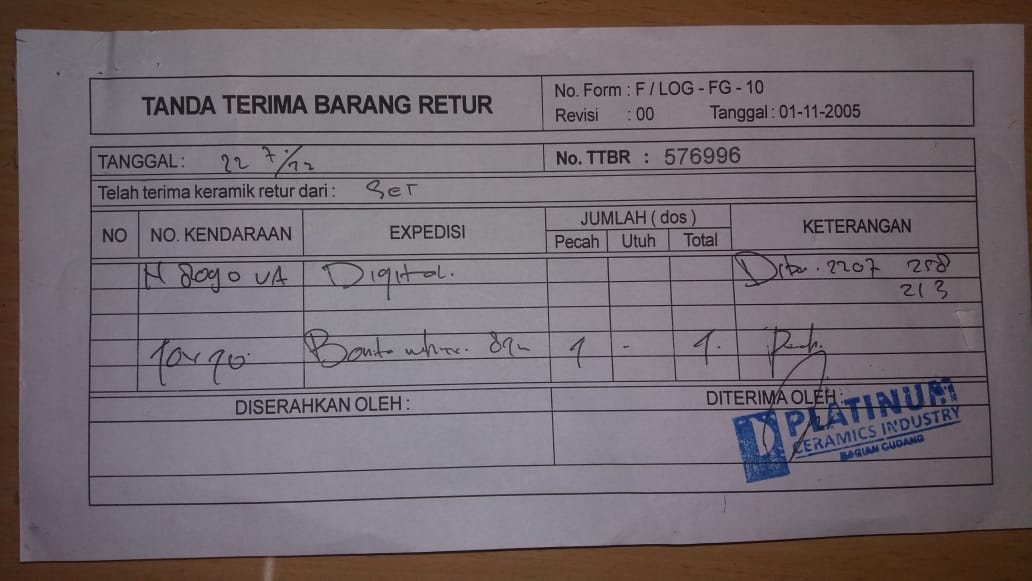 TANDA TERIMA BARANG RETUR
No. Form : F / LOG - FG - 10
Revisi : 00 Tanggal : 01-11-2005
TANGGAL : 22 7/22
No. TTBR : 576996
Telah terima keramik retur dari : SET
NO NO. KENDARAAN EXPEDISI JUMLAH ( dos ) KETERANGAN
Pecah Utuh Total
N 8090 UA Digital. 2207 258
213
1 - 1.
DISERAHKAN OLEH :
DITERIMA OLEH :
PLATINUM
CERAMICS INDUSTRY
BAGIAN GUDANG